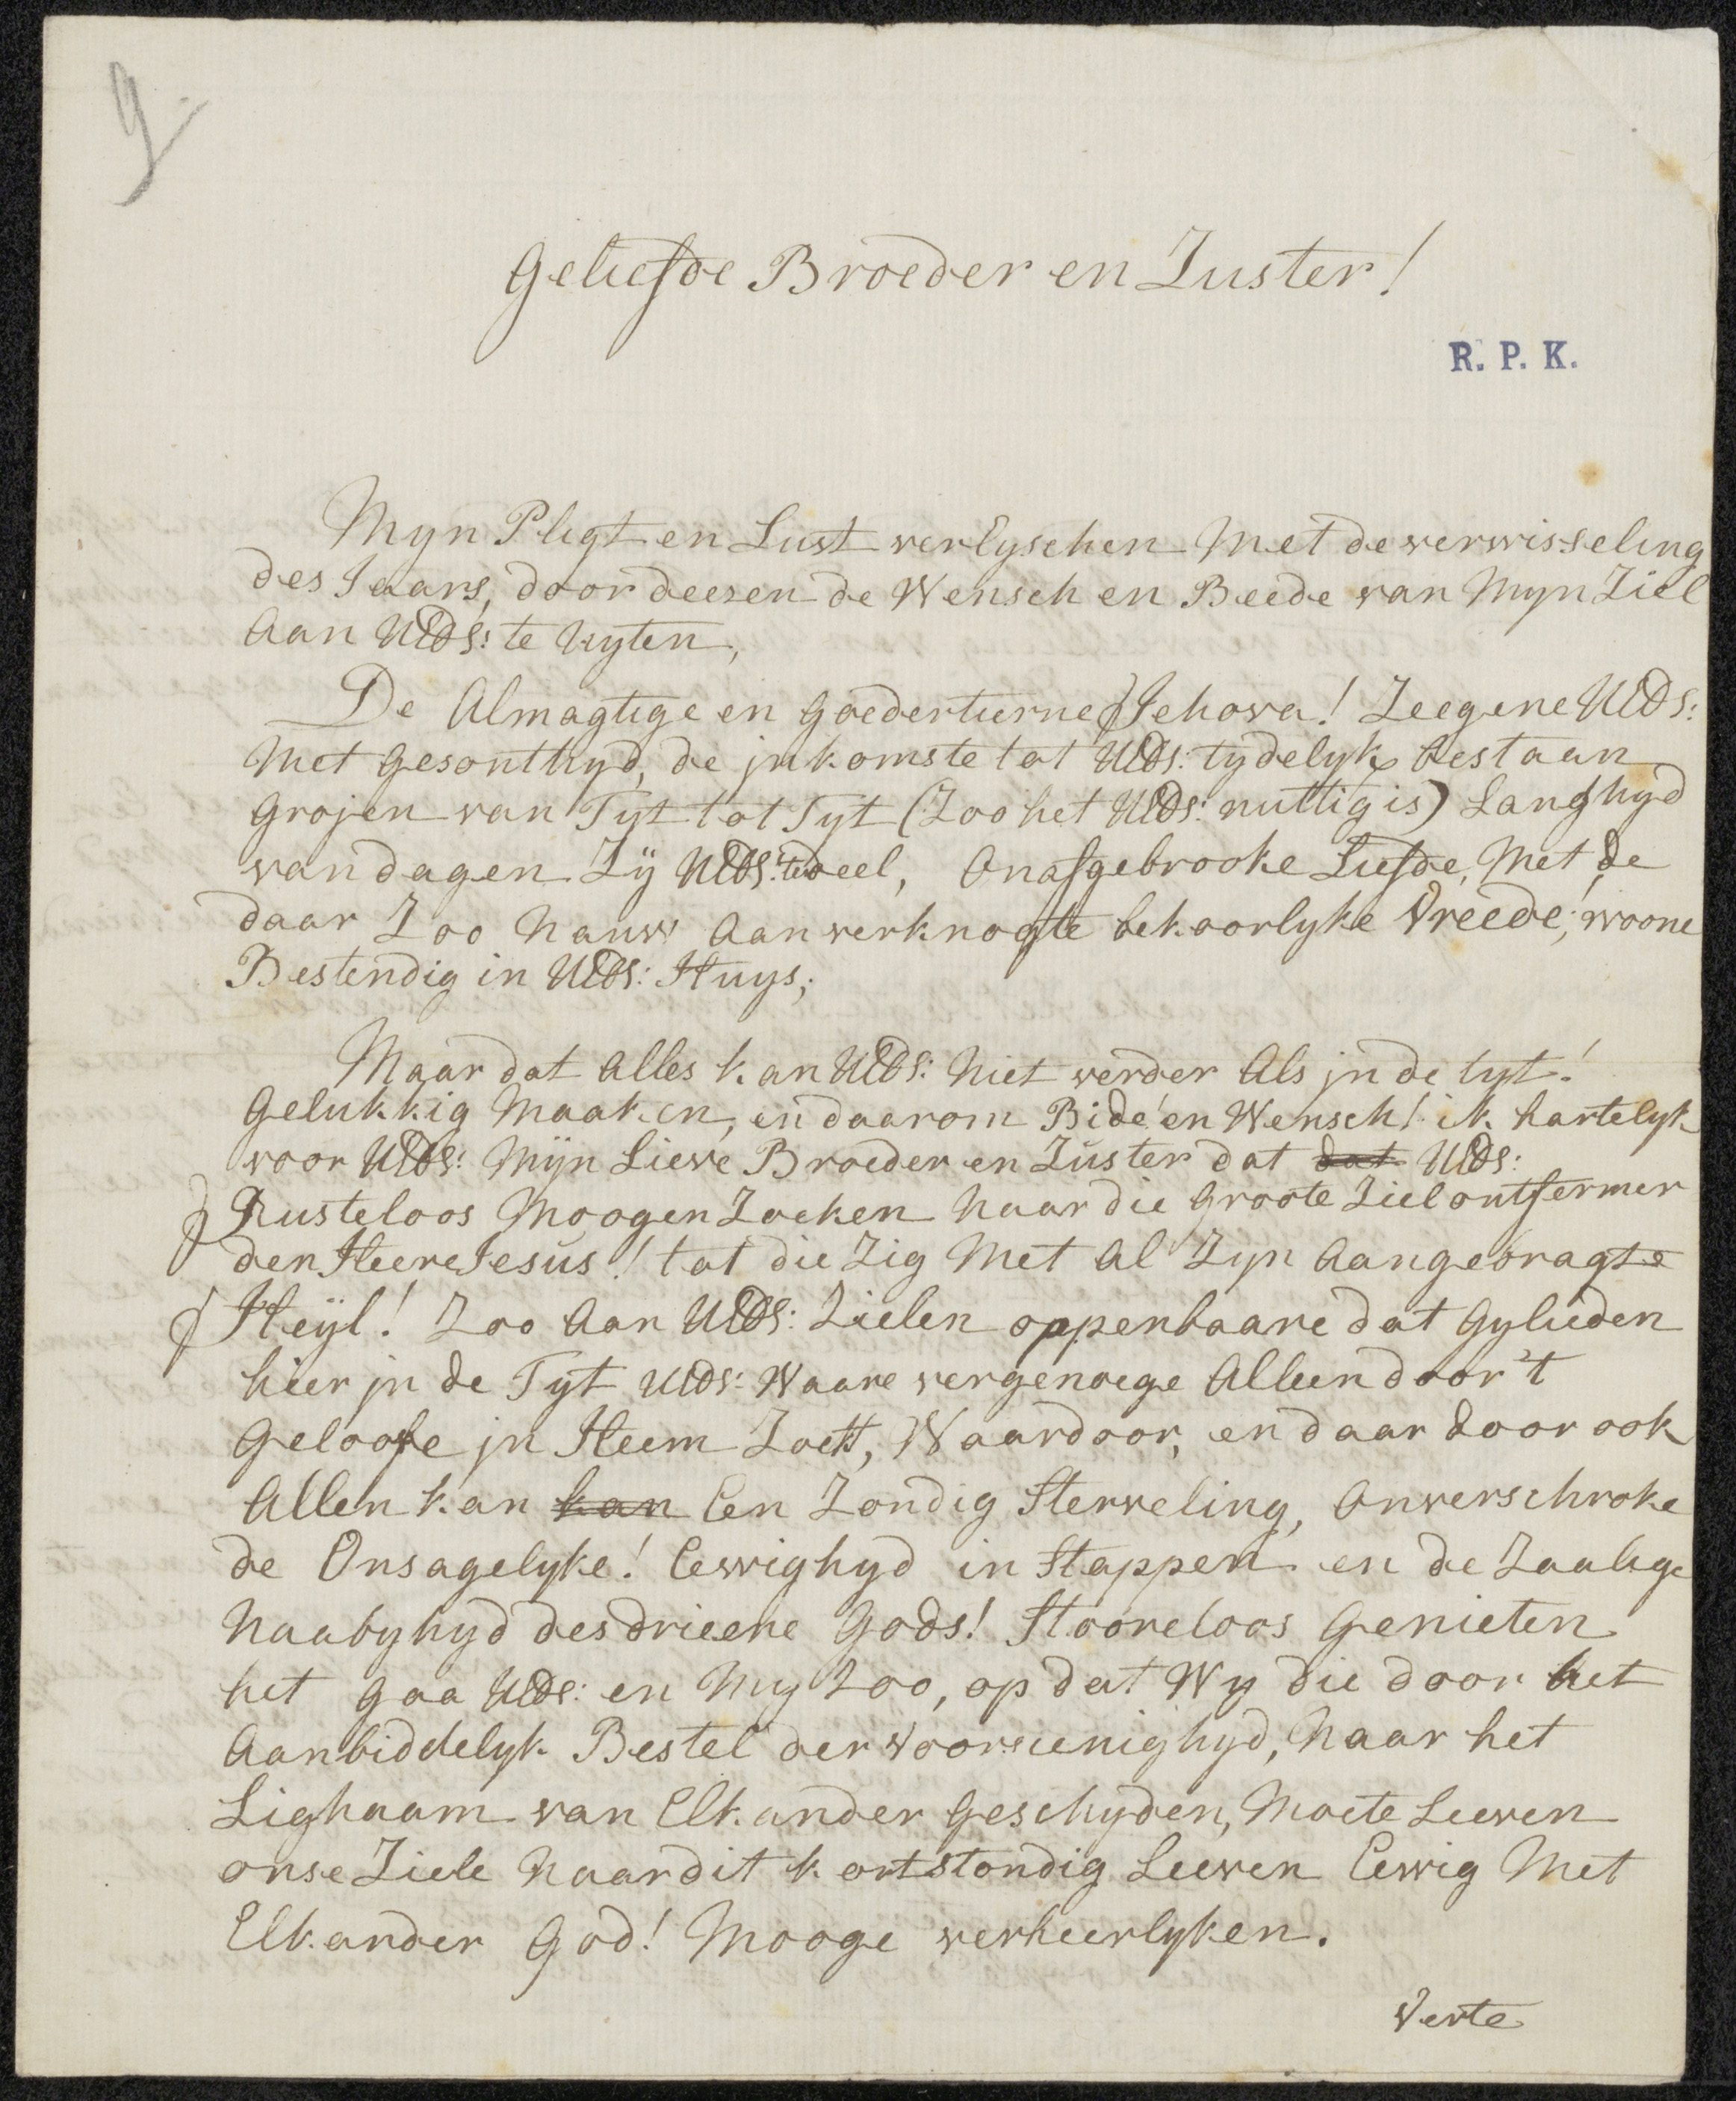 9
Geliefde Broeder en Zuster!
R. P. K.
Myn Pligt en Lust verlyschen Met de verwisseling
des Jaars, door deesen de Wensch en Beede van Myn Ziel
Aan UEDs: te Uyten,
De Almagtige en goedertierne Jehova! Zeegene UEDs:
Met gesonthyd, de jnkomste tot UEDs: tydelyk bestaan
Grojen van Tyt tot Tyt (Zoo het UEDs: nuttig is) Langhyd
van dagen Zÿ UEDs: deel, Onafgebrooke Liefde, Met de
daar Zoo Nauw Aan verknogte bekoorlyke Vreede, woone
Bestendig in UEDs: Huys;
Maar dat Alles kan UEDs: Niet verder Als jn de tyt!
Gelukkig Maaken, en daarom Bide en Wensch! ik hartelyk
voor UEDs: Mÿn Lieve Broeder en Zuster dat dat UEDs:
Rusteloos Moogen Zoeken Naar die Groote Ziel ontfermer
den Heere Jesus! tot die Zig Met Al Zyn Aangebragte
Heÿl! Zoo Aan UEDs: Zielen oppenbaare dat Gylieden
hier jn de Tyt UEDs: Waare vergenoege Alleen door 't
Geloofe jn Heem Zoekt, Waardoor, en daar door ook
Allen kan kan Een Zondig Sterveling, Onverschroke
de Onsagelyke! Eewighyd in Stappen en de Zaalige
Naabyhyd des drieene Gods! Stooreloos Genieten
het gaa UEDs: en My Zoo, op dat Wy die door het
Aanbiddelyk Bestel der Voorsienighyd, Naar het
Lighaam van Elkander Geschyden, Moete Leeven
onse Ziele Naar dit kortstondig Leeven Eewig Met
Elkander God! Mooge verheerlyken.
Verte